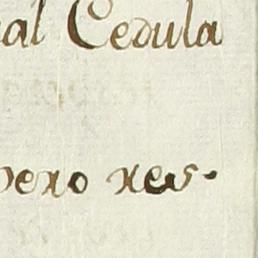 al Cedula
pero res-